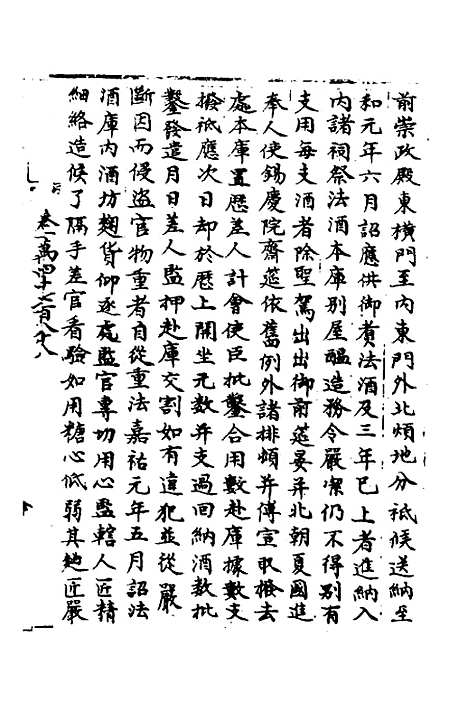 前崇政殿東橫門至內東門外北煩地分祗候送納至
和元年六月詔應供御煮法酒及三年已上者進納入
內諸祠祭法酒本庫別屋醖造務令嚴潔仍不得別有
支用每支酒者除聖駕出出御前筵宴并北朝夏國進
奉人使錫慶院齋筵依舊例外諸排頓并傳宣取撥去
處本庫置歷差人計會使臣批鑿合用數赴庫據數支
撥祗應次日却於歷上開坐元數并支過回納酒數批
鑿發遣月日差人監押赴庫交割如有違犯並從嚴
斷因而侵盜官物重者自從重法嘉祐元年五月詔法
酒庫內酒坊麴貨仰逐處監官專切用心監轄人匠精
細絡造候了隔手差官看驗如用糖心低弱其麯匠嚴
卷一萬四千七百八十八